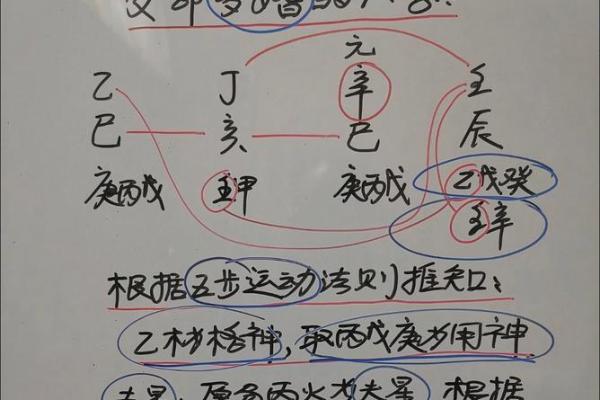 元
乙 丁 辛 壬
巳 亥 巳 辰
庚丙戊 壬甲 庚丙戊 乙戊癸
壬辛
根据五步运动法则推知：
乙木格神，取丙戊庚为用神
夫星 丙火为夫星 根据